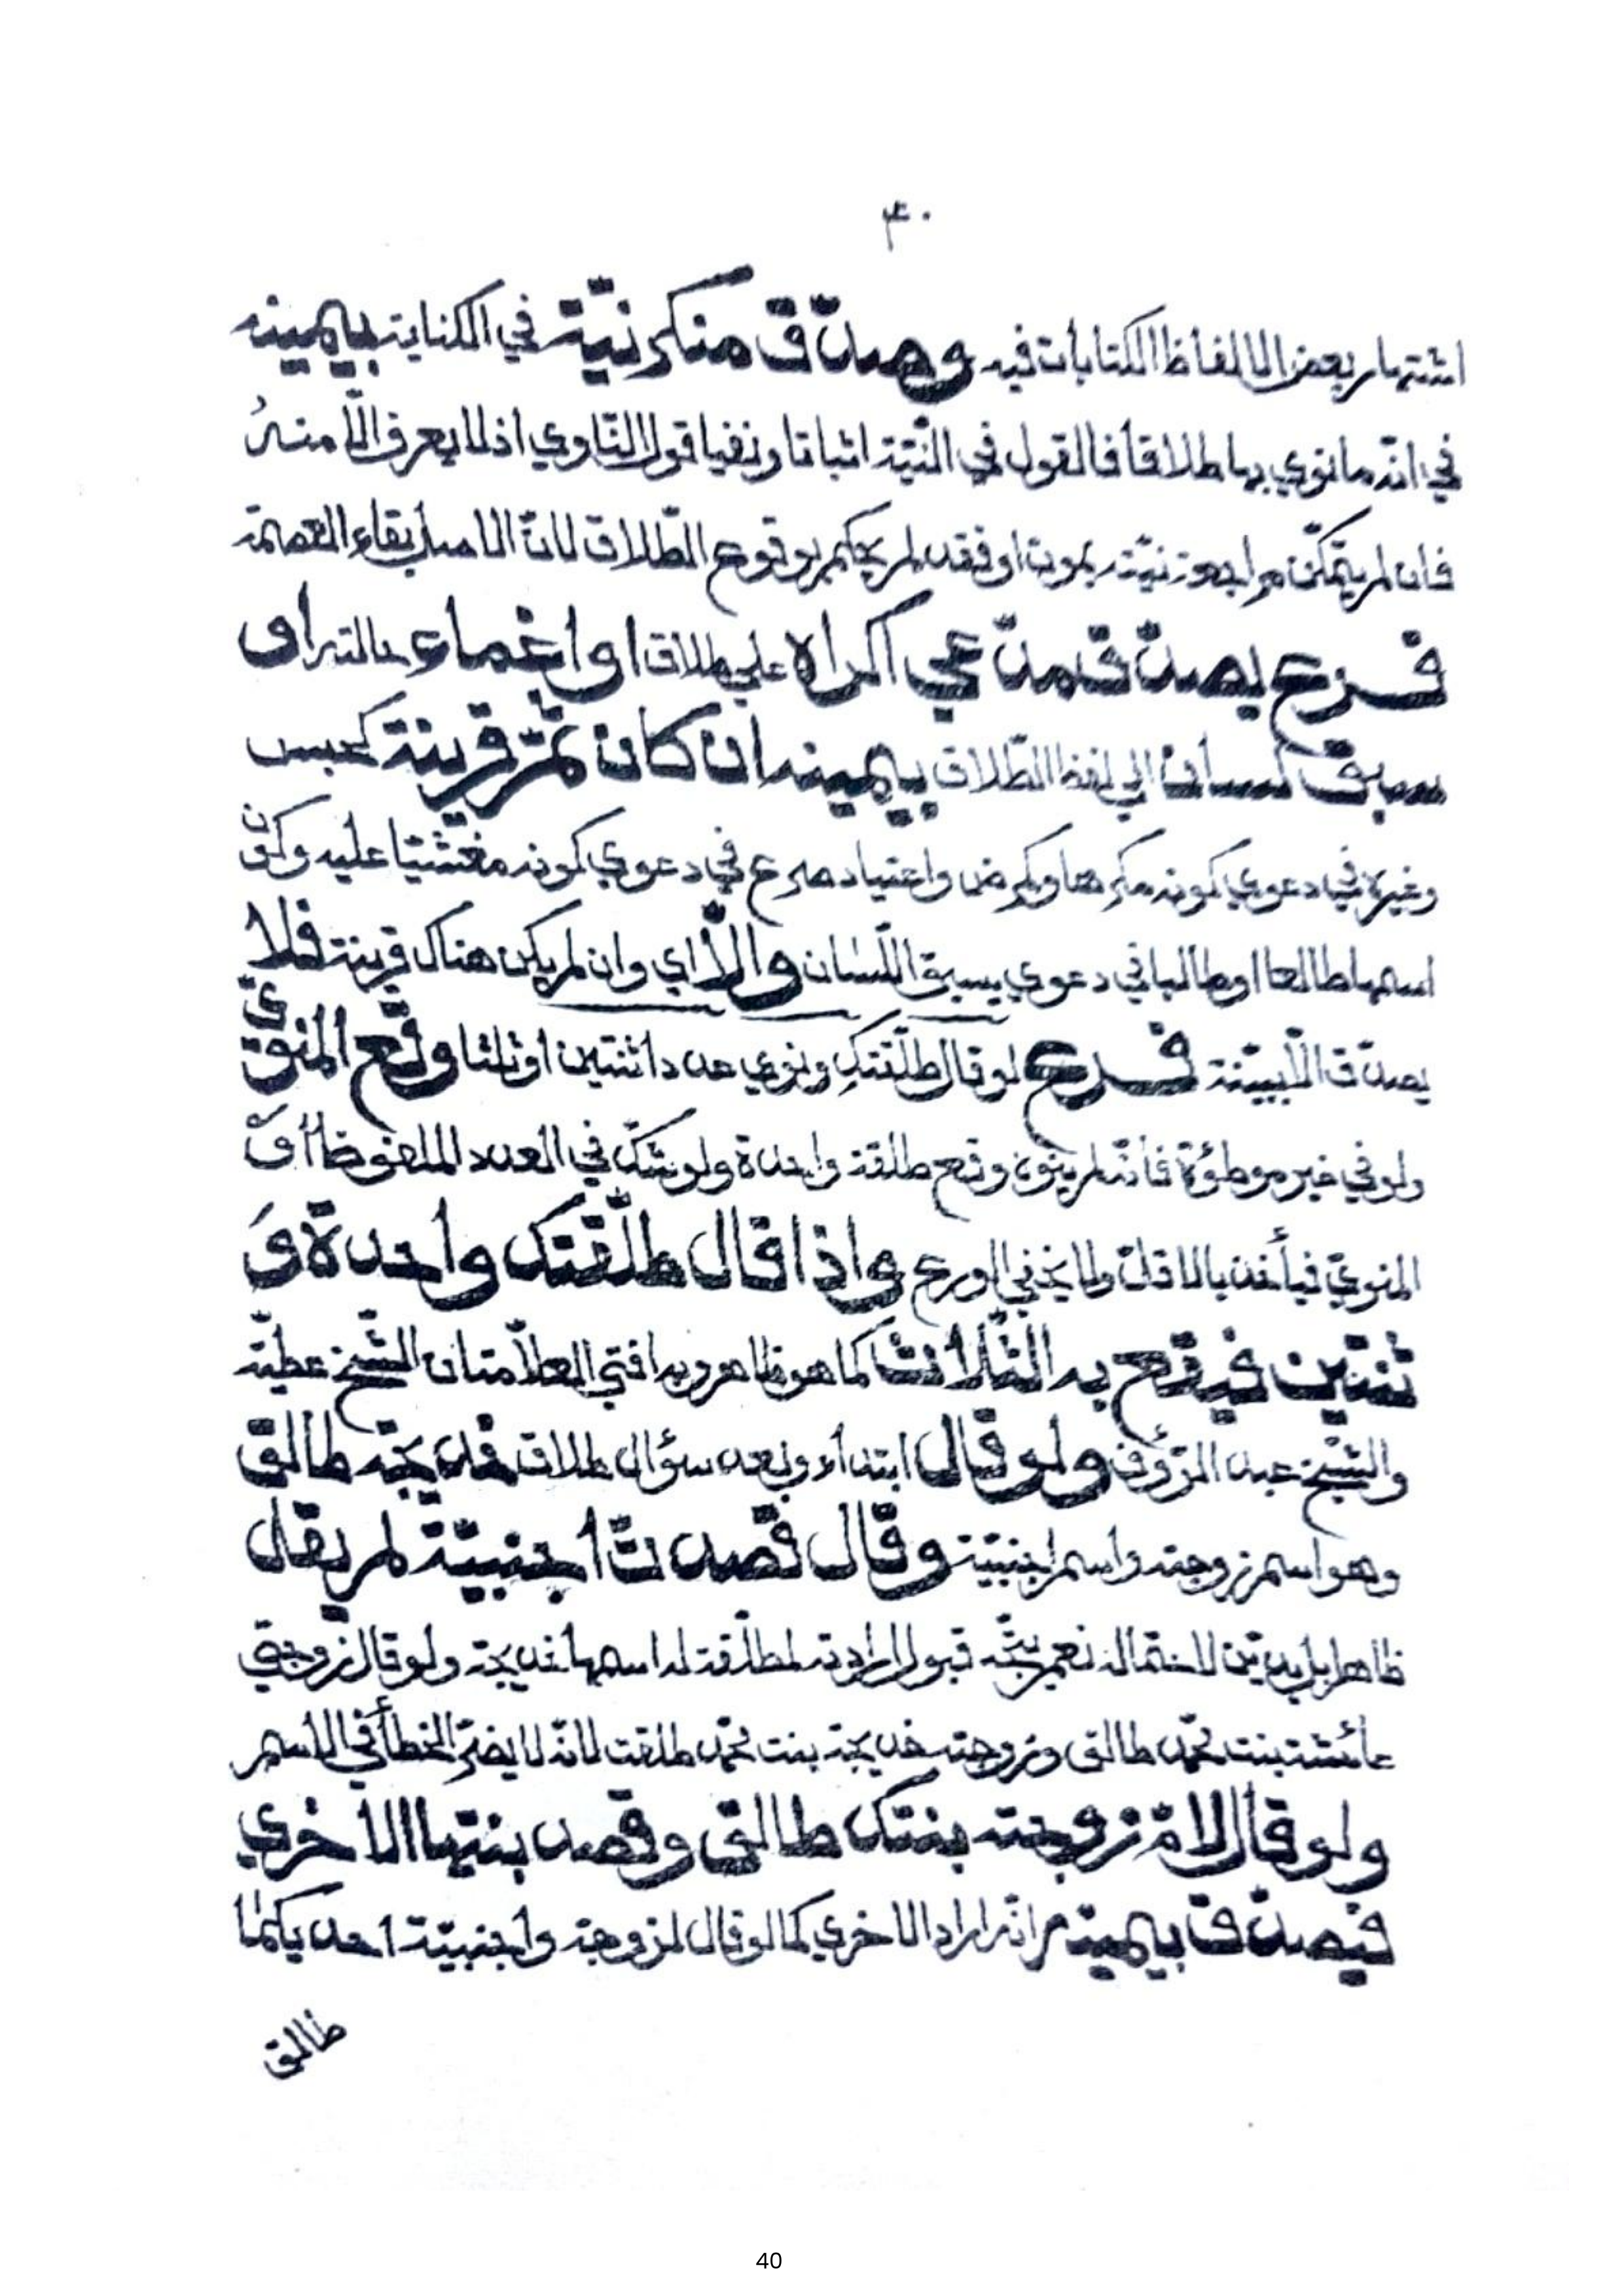 ٤٠
اشتهار بعض الالفاظ الكنايات فيه وصدّق منكر نيّة في الكناية بيمينه
في انّه ما نوي بها طلاقا فالقول في النّيّة اثباتا ونفيا قول النّاوي اذ لا يعرف الّا منهُ
فان لم يتمكّن مراجعة نيّته بموت او فقد لم يحكم بوقوع الطّلاق لانّ الاصل بقاء العصمة
فرع يصدّق مدّعي اكراه علي طلاق او اغماء حالته او
سبق لسان الي لفظ الطّلاق بيمينه ان كان ثمّ قرينة كحبس
وغيره في دعوي كونه مكرها وكمرض واعتياد صرع في دعوي كونه مغشيّا عليه وكون
اسمها طالعا او طالبا في دعوي سبق اللّسان والّا اي وان لم يكن هناك قرينة فلا
يصدّق الّا ببيّنة فرع لو قال طلّقتكِ ونوي عددا ثنتين او ثلثا وقع المنويّ
ولو في غير موطؤة فان لم ينوه وقع طلقة واحدة ولو شكّ في العدد الملفوظ أو
المنويّ فيأخذ بالاقلّ ولا يخفي الورع واذا قال طلّقتك واحدة وَ
ثنتين فيقع به الثّلاث كما هو ظاهر وبه افتي العلّامتان الشّيخ عطيّة
والشّيخ عبد الرّؤف ولو قال ابتداء وبعد سؤال طلاق خديجة طالق
وهو اسم زوجته واسم اجنبيّة وقال قصدت اجنبيّة لم يقبل
ظاهرا بل يديّن لاحتماله نعم يتّجه قبول ارادته لمطلّقة له اسمها خديجة ولو قال زوجتي
عائشة بنت محمّد طالق وزوجته خديجة بنت محمّد طلقت لانّه لا يضرّ الخطأ في الاسم
ولو قال لامّ زوجته بنتك طالق وقصد بنتها الاخري
فيصدّق بيمينه انّه اراد الاخري كما لو قال لزوجة واجنبيّة احديكما
طالق
40